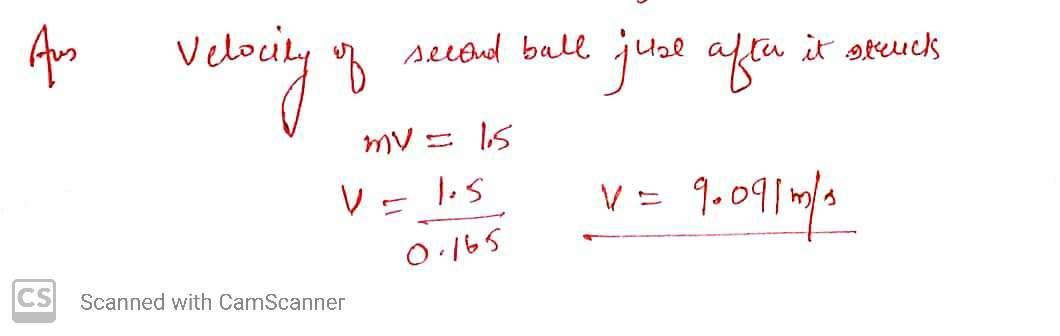 Ans Velocity of second ball just after it struck
mv = 1.5
v = 1.5 / 0.165 v = 9.091 m/s
CS Scanned with CamScanner